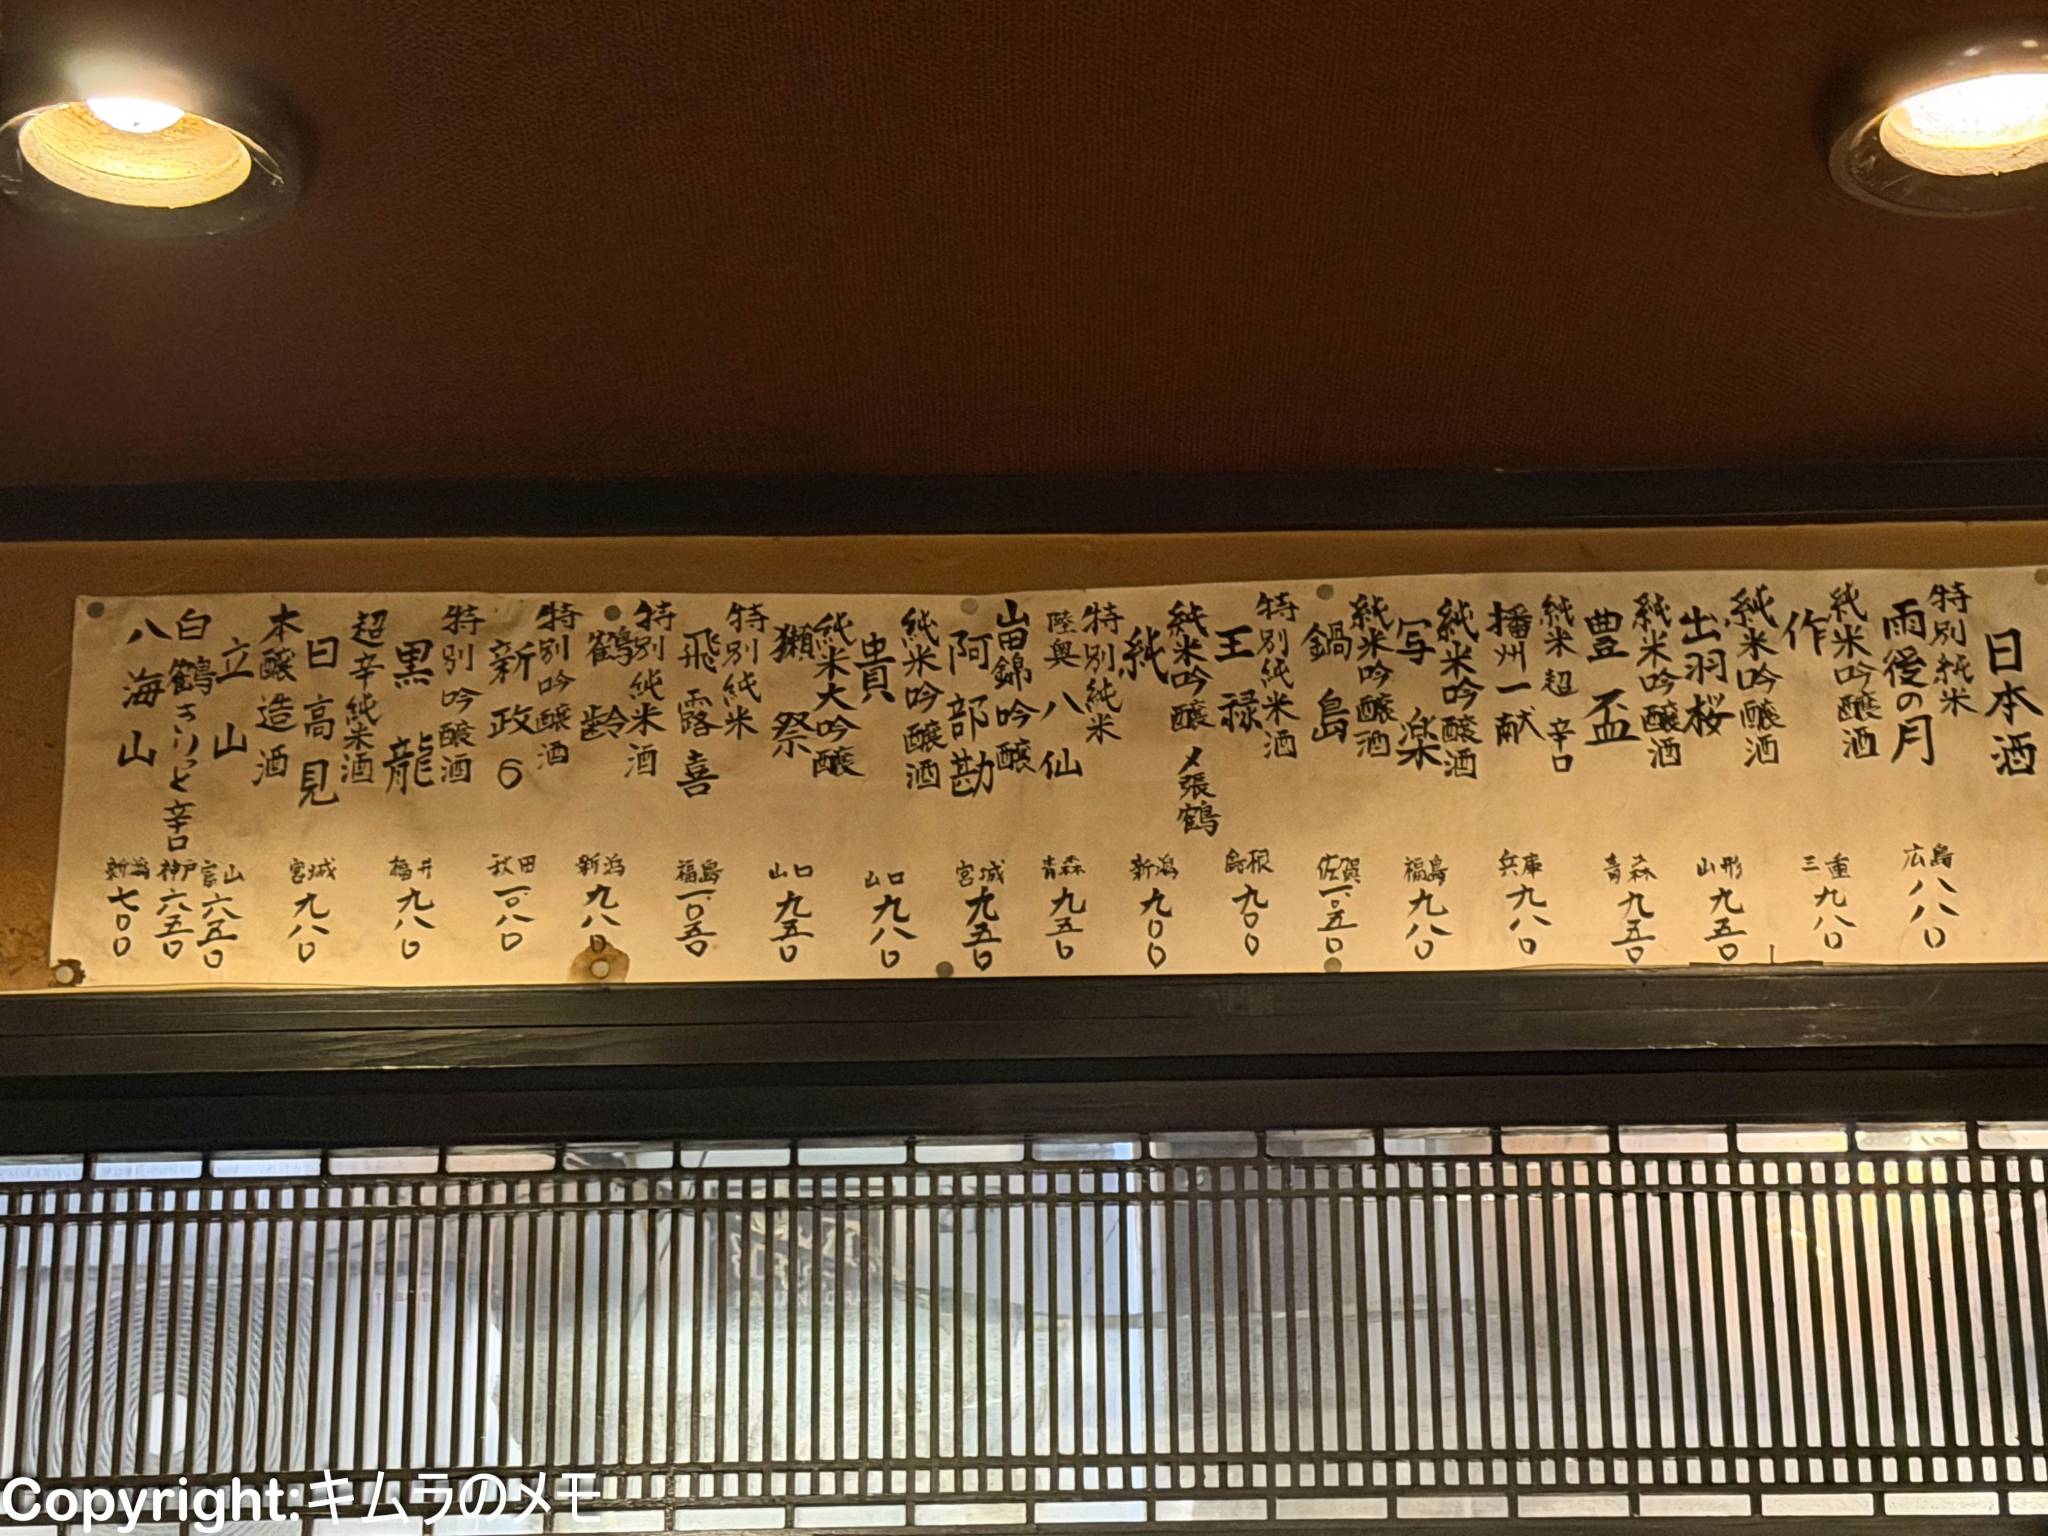 日本酒
特別純米
雨後の月
広島
八八〇
純米吟醸酒
作
三重
九八〇
純米吟醸酒
出羽桜
山形
九五〇
純米吟醸酒
豊盃
青森
九五〇
純米超辛口
播州一献
兵庫
九八〇
純米吟醸酒
写楽
福島
九八〇
純米吟醸酒
鍋島
佐賀
一、〇五〇
特別純米酒
王禄
島根
九〇〇
純米吟醸 〆張鶴
純
新潟
九〇〇
特別純米
陸奥八仙
青森
九五〇
山田錦吟醸
阿部勘
宮城
九五〇
純米吟醸酒
貴
山口
九八〇
純米大吟醸
獺祭
山口
九五〇
特別純米
飛露喜
福島
一、〇五〇
特別純米酒
鶴齢
新潟
九八〇
特別吟醸酒
新政6
秋田
一、〇八〇
特別吟醸酒
黒龍
福井
九八〇
超辛純米酒
日高見
宮城
九八〇
本醸造酒
立山
富山
六五〇
白鶴きりっと辛口
神戸
六五〇
八海山
新潟
七〇〇
Copyright:キムラのメモ